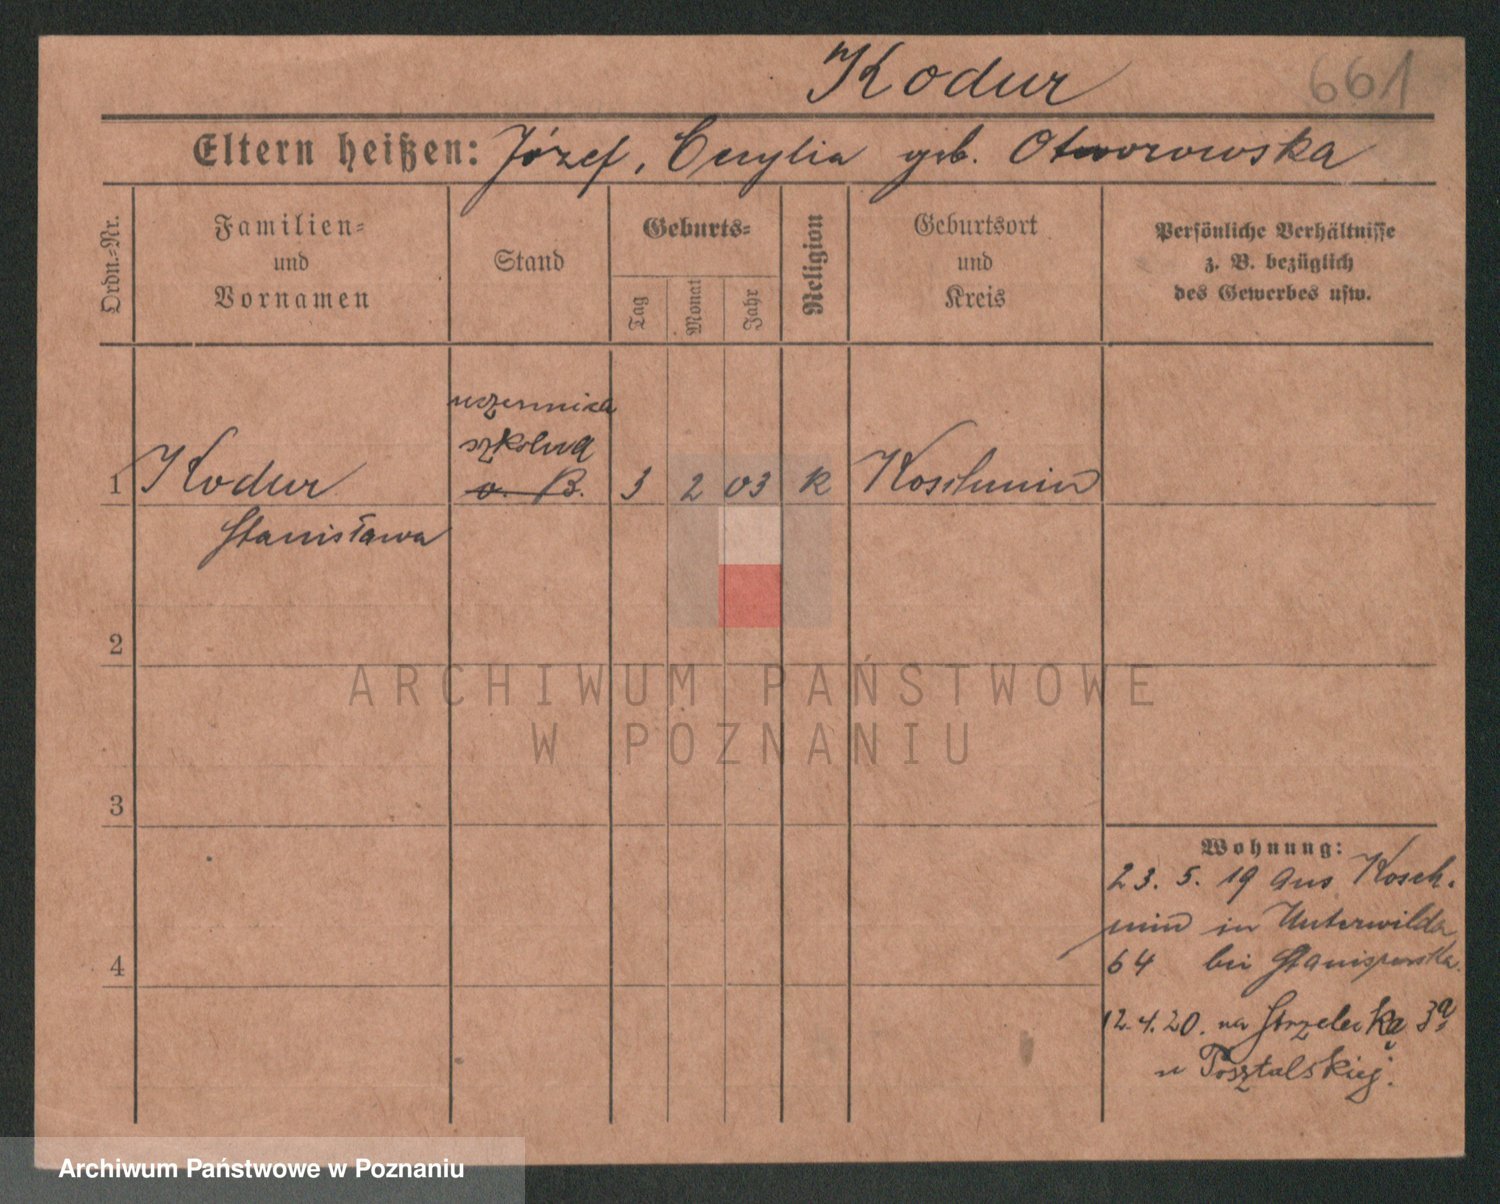 Kodur 661
Eltern heißen: Józef, Cecylia geb. Otworowska
Ordn.-Nr.
Familien-
und
Vornamen
Stand
Geburts-
Tag
Monat
Jahr
Religion
Geburtsort
und
Kreis
Persönliche Verhältnisse
z. B. bezüglich
des Gewerbes usw.
uczennica
szkolna
1 Kodur o. B. 3 2 03 k Koschmin
Stanisława
2
ARCHIWUM PAŃSTWOWE
W POZNANIU
3
Wohnung:
23. 5. 19 aus Kosch-
min in Unterwilda
4
64 bei
12.4.20. na Strzelecką 3a
u
Archiwum Państwowe w Poznaniu